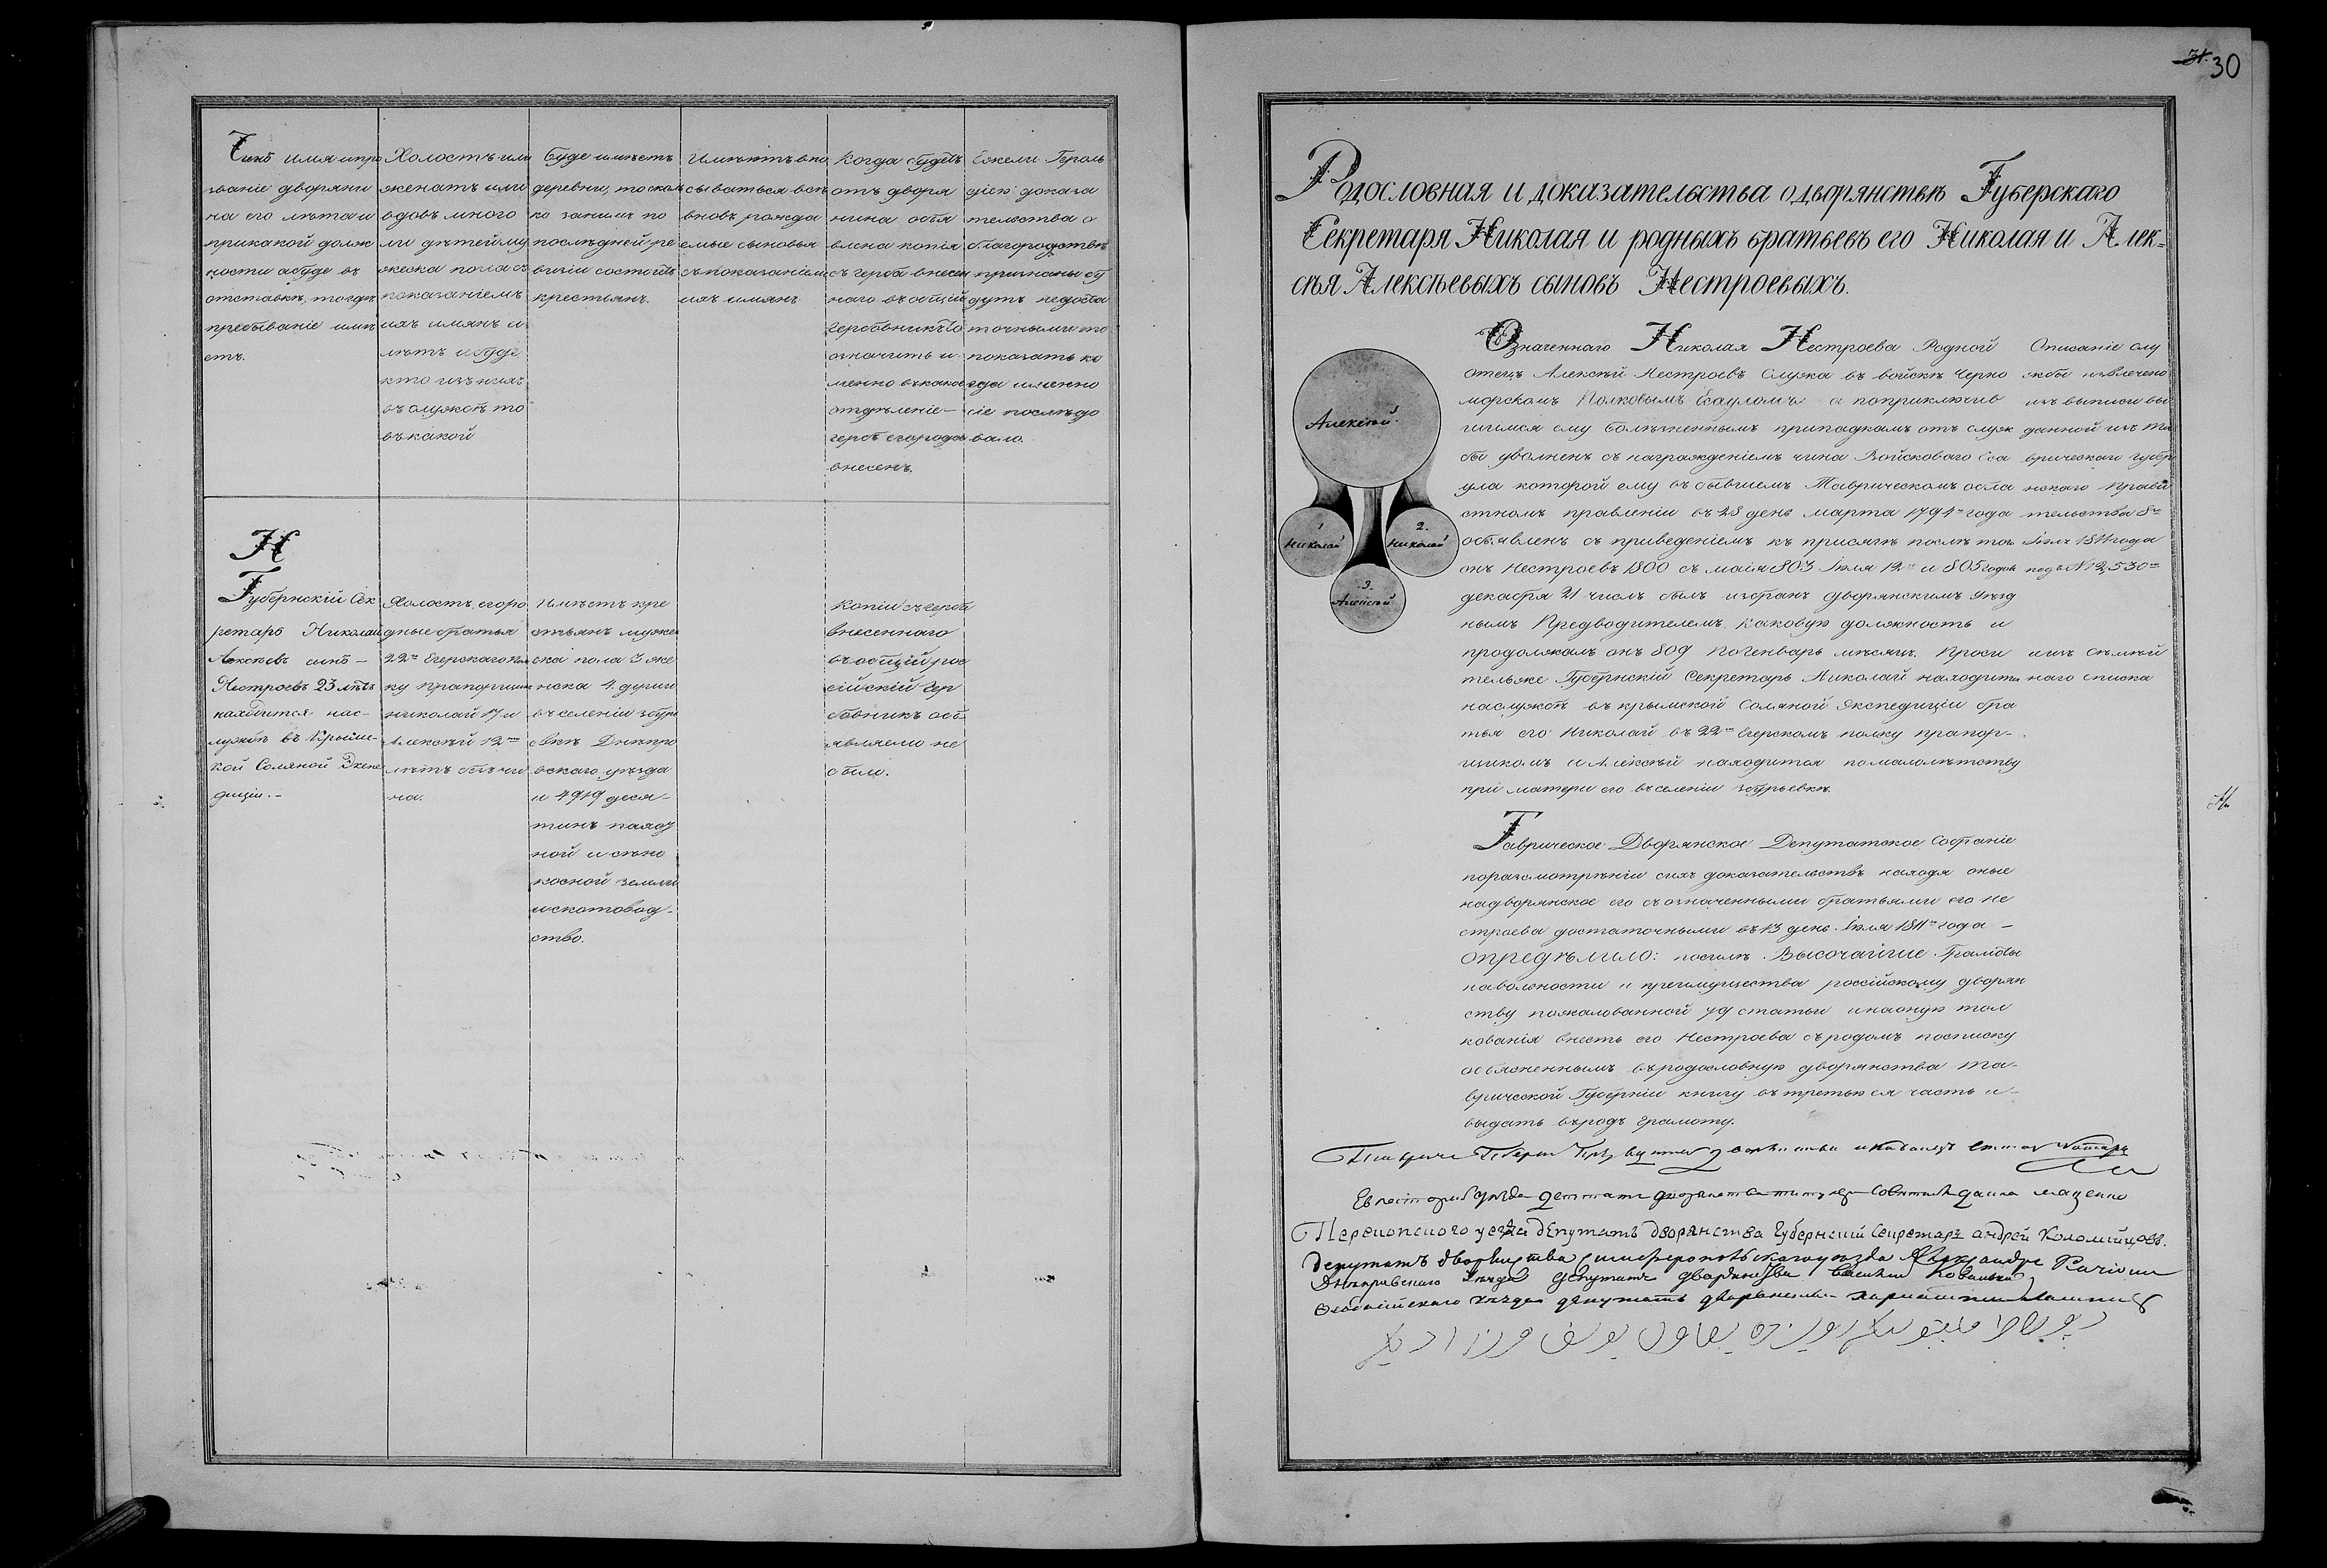 Чинъ имя ипро
званіе дворяни
на его лѣта и
прикакой долж
ности абуде въ
отставкѣ, тогдѣ
пребываніе имѣ
етъ.
Холостъ или
женатъ или
вдовъ много
ли дѣтей му
жеска пола съ
показаніемъ
ихъ имянъ и
лѣтъ ибуде
кто изъ нихъ
въ службѣ то
въ какой
Буде имѣетъ
деревни, то сколь
ко заnимъ по
послѣдней ре
визіи состоитъ
крестьянъ.
Имѣютъ впи
сываться всѣ
вновь рожда
емые сыновья
съ показаніемъ
ихъ имянъ
Когда будетъ
отъ дворя
нина объя
влена копія
съ герба внесен
наго въ общій
гербовникъ то
означить и
менно въ какое
отдѣленіе
гербъ егорода
внесенъ.
Ежели Героль
діею доказа
тельства о
благородствѣ
признаны бу
дутъ недоста
точными то
показать ко
гда именно
сіе послѣдо
вало.
Н
Губернскій Сек
ретарь Николай
Алексѣевъ сынъ
Нестроевъ 23 лѣтъ
находится нас-
лужбѣ въ Крымс-
кой Соляной Экспе
диціи.-
Холостъ, егоро
дные братья
22го Егерскаго пол
ку прапорщикъ
Николай 17 и
Алексѣй 12ти
лѣтъ безъ чи
на.
Имѣетъ кре
стьянъ мужес
ска пола 3 же
нска 4. души
въ селеніи збурь
евкѣ Днепро
вскаго уѣзда
и 4919 деся-
тинъ пахот
ной и сѣно
косной земли
и скотовод-
ство.
Копіи съ герба
внесеннаго
въ общій рос
сійскій гер
бовникъ объ
являемо не
было.
31. 30
Родословная и доказательства о дворянствѣ Губерскаго
Секретаря Николая и родныхъ братьевъ его Николая и Алек=
сѣя Алексѣевыхъ сыновъ Нестроевыхъ.
Алексѣй
1 Николай
2. Николай
3. Алексѣй
Означеннаго Николая Нестроева Родной
отецъ Алексѣй Нестроевъ Служа въ войскѣ Черно
морскомъ Полковымъ Есауломъ а поприключив
шимся ему болѣзненнымъ припадкамъ отъ служ
бы уволненъ съ награжденіемъ чина Войсковаго Еса
ула которой ему въ бывшемъ Таврическомъ обла
стномъ правленіи въ 28 день марта 1794го года
объявленъ съ приведеніемъ къ присягѣ послѣ того
онъ Нестроевъ 1800 съ маія 803 Іюля 12го и 805 годовъ
декабря 21 числъ былъ избранъ дворянскимъ Уѣзд
нымъ Предводителемъ, каковую должность и
продолжалъ онъ 809 По Генварь мѣсяцъ. Проси
тельже Губернскій Секретарь Николай находится
наслужбѣ въ крымской Соляной Экспедиціи бра
тья его Николай въ 22мъ Егерскомъ полку прапор-
щикомъ и Алексѣй находится помалолѣтству
при матери его въ селеніи збурьевкѣ.
Описаніе слу
жбы извлечено
изъ выписи вы
данной изъ Та
врическаго губер
нскаго Прави
тельства 8го
Іюля 1811 года
подъ N 12,530мъ
изъ Семей
наго списка
Таврическое Дворянское Депутатское Собраніе
поразсмотрѣніи сихъ доказательствъ находя оные
надворянское его съ означенными братьями его Не
строева достаточными въ 13 день Іюля 1811го года -
опредѣлило: посилѣ Высочайшіе Грамоты
навольности и преимущества россійскому дворян
ству пожалованной 79 статьи инаоную тол
кованія внесть его Нестроева съ родомъ посписку
объясненнымъ въ родословную дворянства Та-
врической Губерніи книгу въ третью ея часть и-
выдать въ родъ грамоту.
Перекопского уезда депутатъ дворянства губернский секретарь андрей Коломийцовъ.
Депутатъ дворянства симферопольскагоуезда Александръ
Днѣпровскаго уѣзда депутатъ дворянства
Феодосійскаго уѣзда депутатъ дворянства